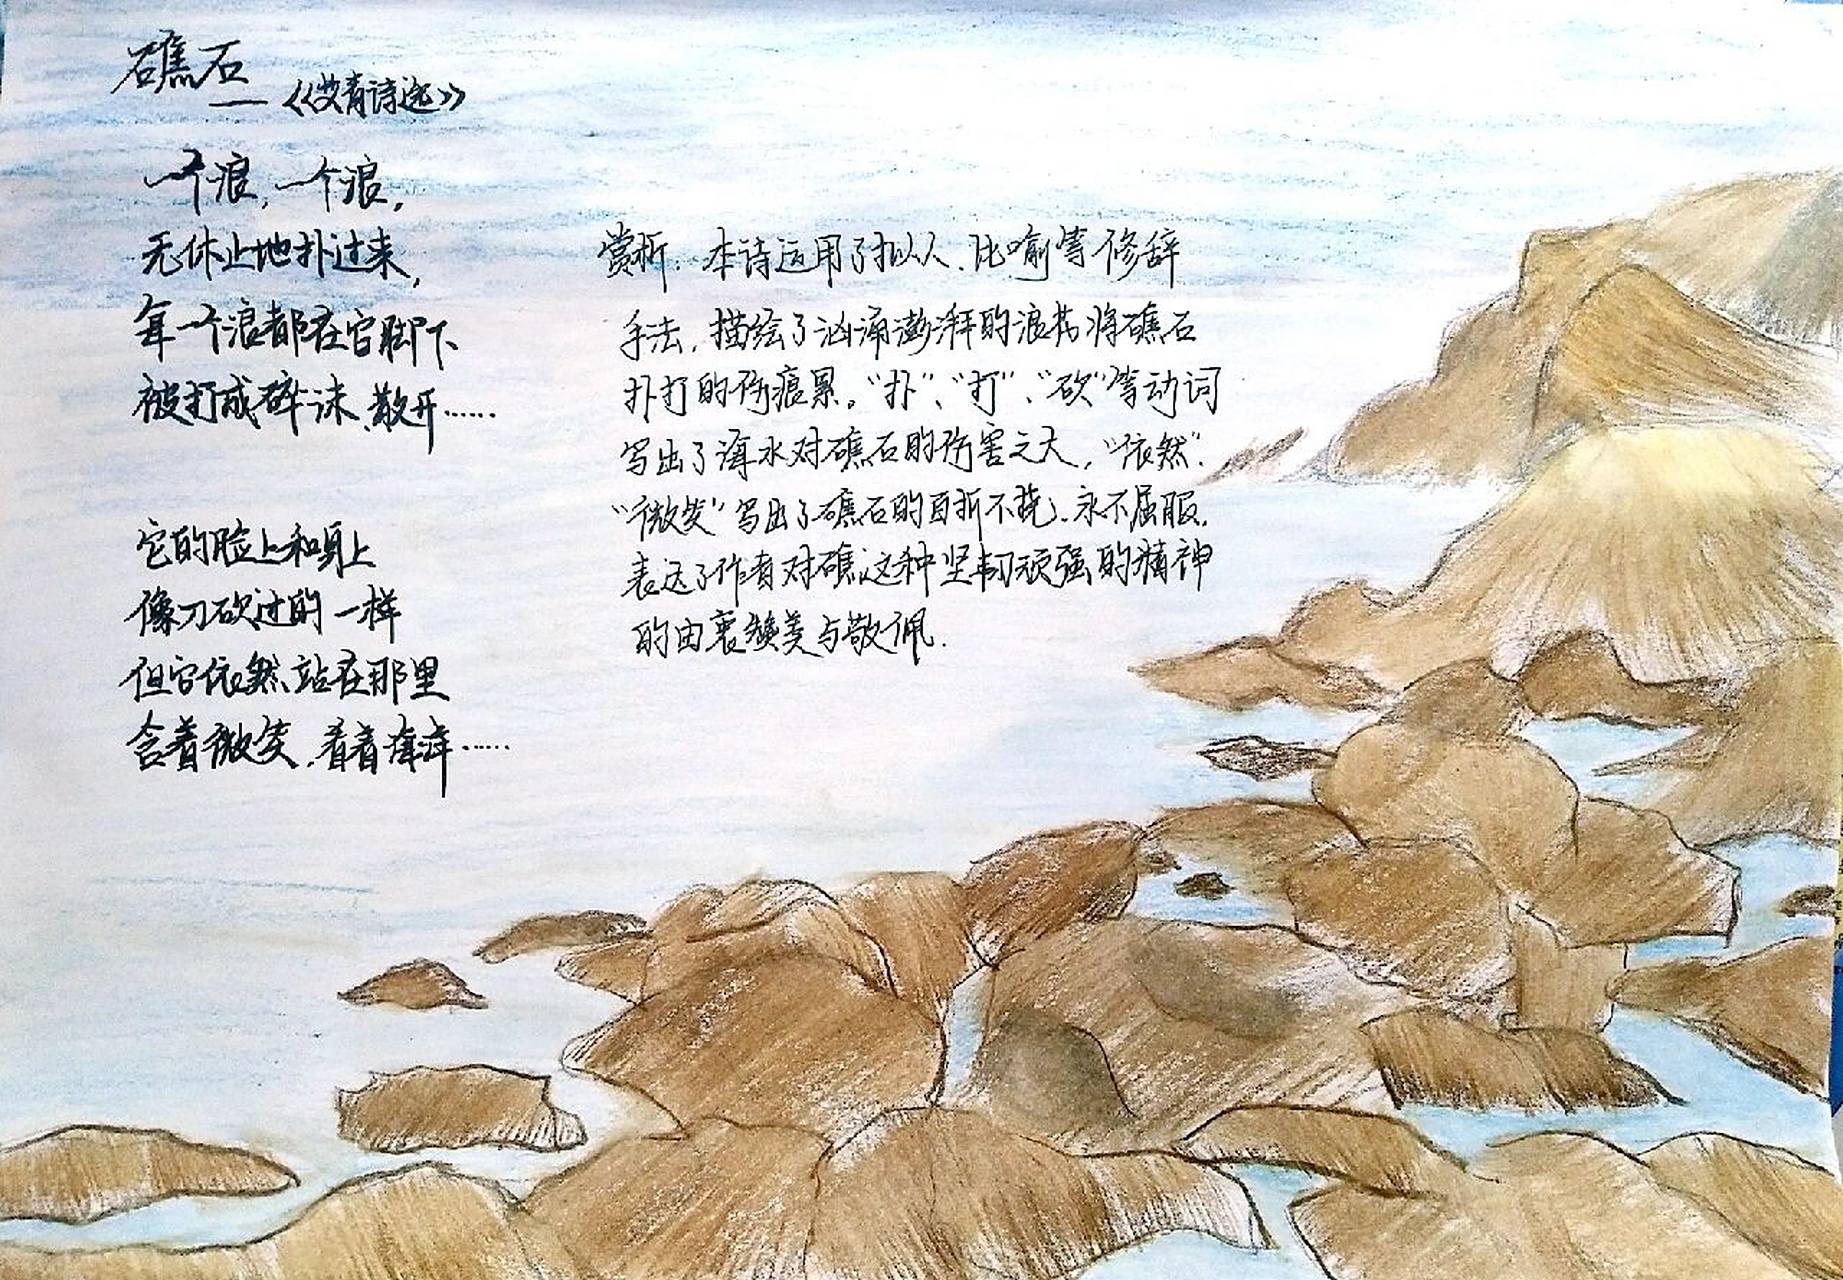 礁石
——《艾青诗选》
一个浪，一个浪，
无休止地扑过来，
每一个浪都在它脚下
被打成碎沫、散开……
它的脸上和身上
像刀砍过的一样
但它依然站在那里
含着微笑，看着海洋……
赏析：本诗运用了拟人、比喻等修辞
手法，描绘了汹涌澎湃的浪花将礁石
扑打的伤痕累。“扑”、“打”、“砍”等动词
写出了海水对礁石的伤害之大，“依然”.
“微笑”写出了礁石的百折不挠、永不屈服.
表达了作者对礁这种坚韧顽强的精神
的由衷赞美与敬佩.